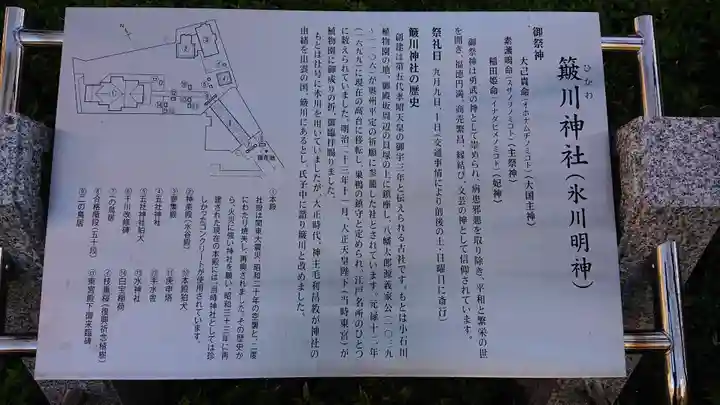 ひかわ
簸川神社(氷川明神)
御祭神
大己貴命(オホナムチノミコト)(大国主神)
素盞嗚命(スサノヲノミコト)(主祭神)
稲田姫命(イナダヒメノミコト)(妃神)
御祭神は勇武の神として崇められ、病患邪悪を取り除き、平和と繁栄の世
を開き、福徳円満、商売繁昌、縁結び、文芸の神として信仰されています。
祭礼日 九月九日、十日(交通事情により前後の土・日曜日に斎行)
簸川神社の歴史
創建は第五代孝昭天皇の御宇三年と伝えられる古社です。もとは小石川
植物園の地、御殿坂周辺の貝塚の上に鎮座し、八幡太郎源義家公(一〇三九
~一一〇六)が奥州平定の祈願に参籠した社とされています。元禄十二年
(一六九九)に現在の高台に移転し、巣鴨の鎮守と定められ、江戸名所のひとつ
に数えられていました。明治三十三年十一月、大正天皇陛下(当時東宮)が
植物園に御成りの折、御臨拝賜りました。
もとは社号に氷川を用いていましたが、大正時代、神主毛利昌教が神社の
由緒を出雲の国、簸川にあるとし、氏子中に諮り簸川と改めました。
①本殿
社殿は関東大震災、昭和二十年の空襲と、二度
にわたり焼失し、再興されました。その歴史か
ら、火災に強い神社を願い、昭和三十三年に再
建された現在の本殿には、当時神社としては珍
しかったコンクリートが使用されています。
②神楽殿(水谷殿)
③参集殿
④五社神社
⑤五社神社狛犬
⑥千川改修碑
⑦一の鳥居
⑧合格階段(五十段)
⑨二の鳥居
⑩本殿狛犬
⑪庚申塔
⑫手水舎
⑬水神社
⑭白宝稲荷
⑮東宮殿下御来臨碑